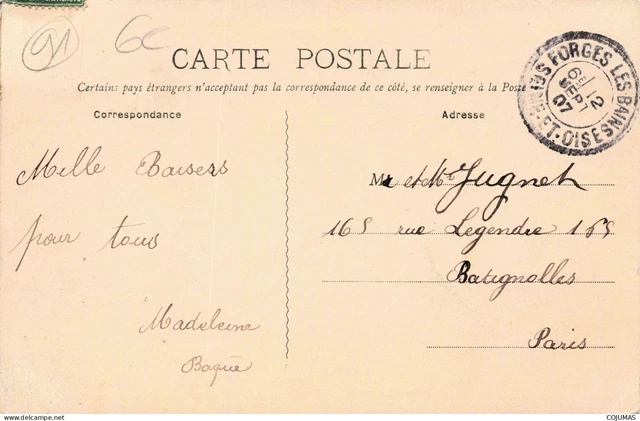 91
6€
CARTE POSTALE
Certains pays étrangers n'acceptant pas la correspondance de ce côté, se renseigner à la Poste
Correspondance
Adresse
Mille Baisers
pour tous
Madeleine
Baquë
M et Me Jugnet
165 rue Legendre 165
Batignolles
Paris
FORGES LES BAINS
6E 12
SEPT
07
SEINE-ET-OISE
www.delcampe.net
COJUMAS